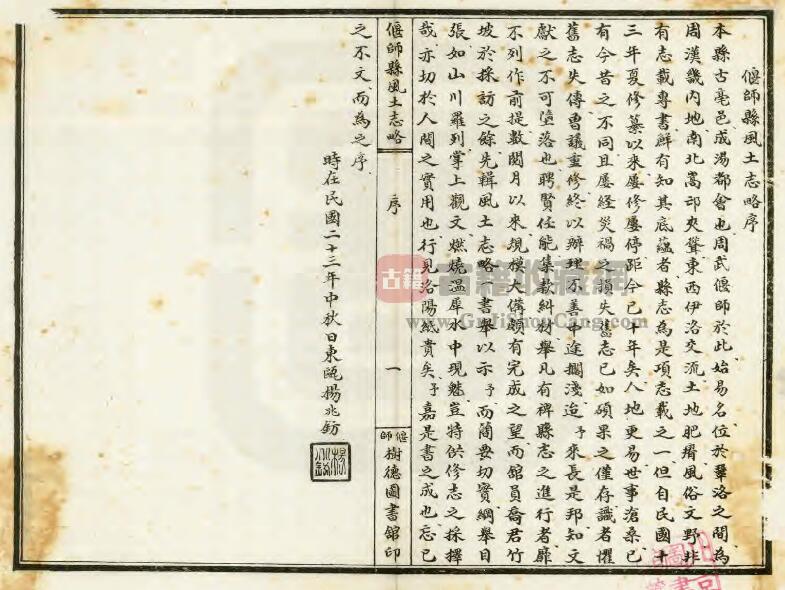 偃師縣風土志略序
本縣古亳邑成湯都會也周武偃師於此始易名位於鞏洛之間為
周漢畿內地南北嵩邙夾聳東西伊洛交流土地肥瘠風俗文野非
有志載專書鮮有知其底蘊者縣志為是項志載之一但自民國十
三年夏修纂以來屢修屢停距今已十年矣人地更易世事滄桑已
有今昔之不同且屢經災禍之損失舊志已如碩果之僅存識者懼
舊志失傳曾議重修終以辦理不善中途擱淺迨予來長是邦知文
獻之不可墮落也聘賢任能集款糾材舉凡有裨縣志之進行者靡
不列作前提數閱月以來規模大備頗有完成之望而館員喬君竹
坡於採訪之餘先輯風土志略一書舉以示予而簡要切實綱舉目
張如山川羅列掌上觀文燃燒溫犀水中現魅豈特供修志之採擇
哉亦切於人間之實用也行見洛陽紙貴矣予嘉是書之成也忘已
偃師縣風土志略
序
一
偃師樹德圖書館印
之不文而為之序
時在民國二十三年中秋日東甌楊兆鈁
古籍收藏網
www.GuJiShouCang.com